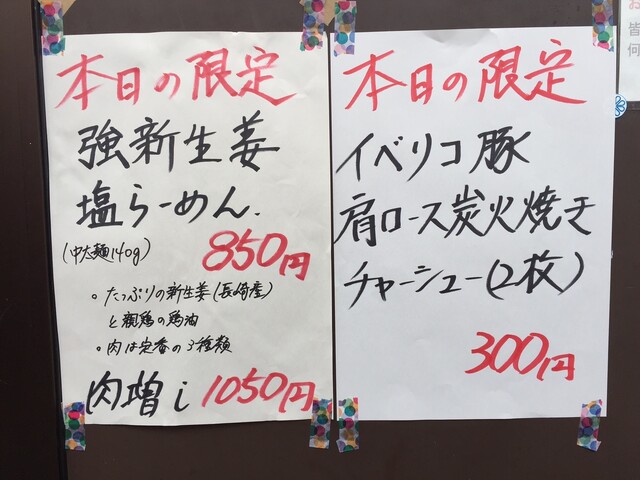 本日の限定
強新生姜
塩らーめん.
(中太麺140g)
850円
。たっぷりの新生姜(長崎産)
と親鶏の鶏油
。肉は定番の3種類
肉増し 1050円
本日の限定
イベリコ豚
肩ロース炭火焼き
チャーシュー(2枚)
300円
お
皆
何